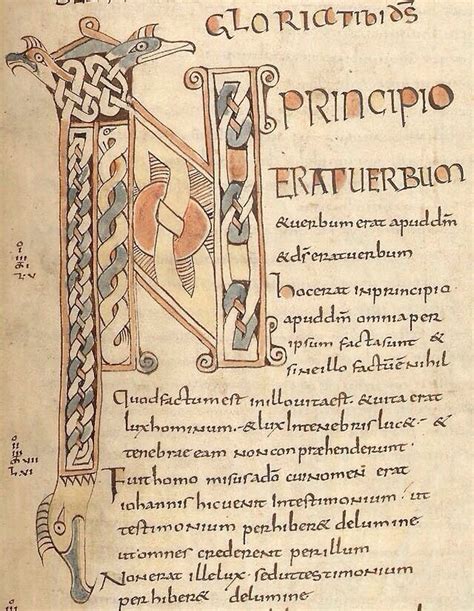 GLORIA TIBI DS
IN PRINCIPIO
ERAT UERBUM
&uerbum erat apud dm
& ds erat uerbum
hoc erat in principio
apud dm omnia per
ipsum facta sunt &
sine illo factu e nihil
quod factum est in illo uita est . & uita erat
lux hominum . & lux In tenebris luc& . &
tenebrae eam non conprehenderunt .
Fuit homo misus a do cui nomen erat
iohannis hic uenit In testimonium . ut
testimonium perhiber& de lumine
ut omnes crederent per illum
Non erat ille lux . sed ut testimonium
perhiber& de lumine